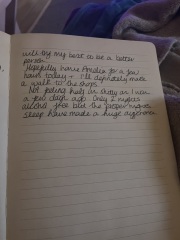 will try my best to be a better
person.
Hopefully have Andien for a few
hours today + I'll definitely make
a walk to the shops.
Not feeling half as shitty as I was
a few days ago. Only 2 nights
alcohol free but the proper nights
sleep have made a huge difference